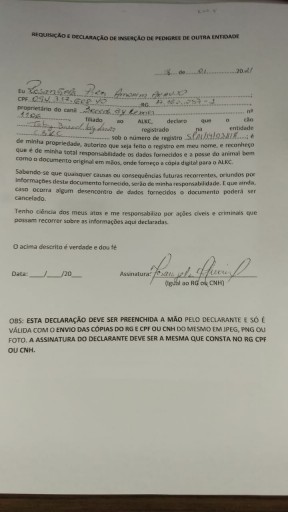 REQUISIÇÃO E DECLARAÇÃO DE INSERÇÃO DE PEDIGREE DE OUTRA ENTIDADE
de 01 2021
Eu
CPF RG
proprietário do canil nº
1106 filiado ao ALKC, declaro que o cão
registrado na entidade
sob o número de registro ; é
de minha propriedade, autorizo que seja feito o registro em meu nome, e reconheço
que é de minha total responsabilidade os dados fornecidos e a posse do animal bem
como o documento original em mãos, onde forneço a cópia digital para o ALKC.
Sabendo-se que quaisquer causas ou consequências futuras recorrentes, oriundos por
informações deste documento fornecido, serão de minha responsabilidade. E que ainda,
caso ocorra algum desencontro de dados fornecidos o documento poderá ser
cancelado.
Tenho ciência dos meus atos e me responsabilizo por ações cíveis e criminais que
possam recorrer sobre as informações aqui declaradas.
O acima descrito é verdade e dou fé
Data: ___/___/20___ Assinatura:
(igual ao RG ou CNH)
OBS: ESTA DECLARAÇÃO DEVE SER PREENCHIDA A MÃO PELO DECLARANTE E SÓ É
VÁLIDA COM O ENVIO DAS CÓPIAS DO RG E CPF OU CNH DO MESMO EM JPEG, PNG OU
FOTO. A ASSINATURA DO DECLARANTE DEVE SER A MESMA QUE CONSTA NO RG CPF
OU CNH.